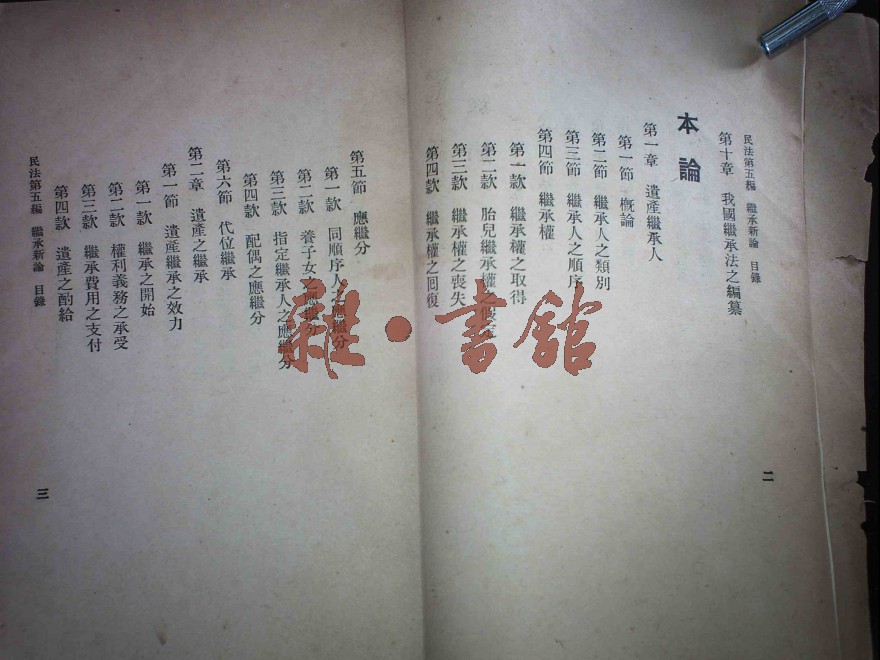 民法第五編　繼承新論　目錄
第十章　我國繼承法之編纂
本論
第一章　遺產繼承人
第一節　概論
第二節　繼承人之類別
第三節　繼承人之順序
第四節　繼承權
第一款　繼承權之取得
第二款　胎兒繼承權之假定
第三款　繼承權之喪失
第四款　繼承權之回復
二
第五節　應繼分
第一款　同順序人之應繼分
第二款　養子女之應繼分
第三款　指定繼承人之應繼分
第四款　配偶之應繼分
第六節　代位繼承
第二章　遺產之繼承
第一節　遺產繼承之效力
第一款　繼承之開始
第二款　權利義務之承受
第三款　繼承費用之支付
第四款　遺產之酌給
民法第五編　繼承新論　目錄
三
雜·書館